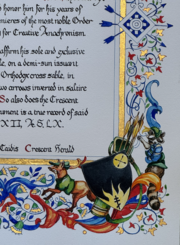 honor him for his years of
of the most noble Order
for Creative Anachronism.
affirm his sole and exclusive
on a demi-sun issuant
Orthodox cross sable, in
two arrows inverted in saltire
So also does the Crescent
is a true record of said
XII, A.S. LX.
Crescent Herald